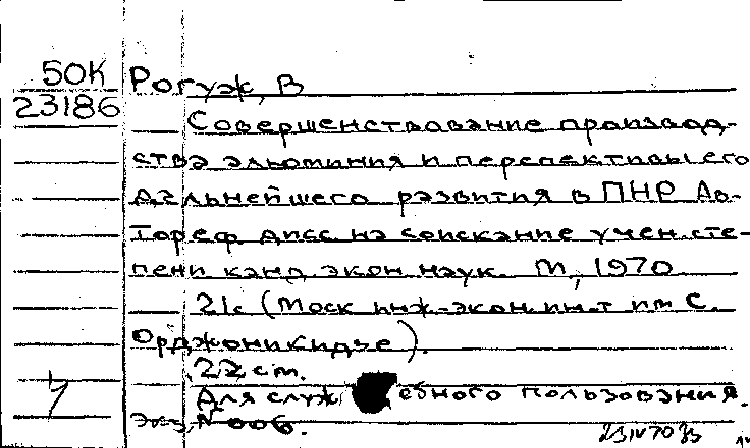 50К Рогуж, В
23186 Совершенствование производ-
ства алюминия и перспективы его
дальнейшего развития в ПНР Ав-
тореф дисс на соискание учен. сте-
пени канд экон наук. М, 1970
21с (Моск инж-экон. ин-т им С.
Орджоникидзе).
22 cm.
Для служебного пользования.
Экз, № 006.